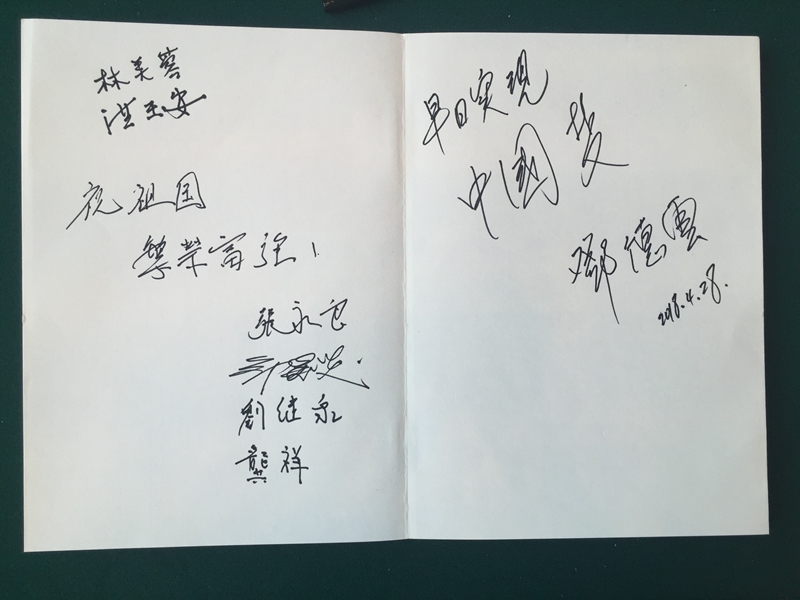 林美蓉
洪玉安
祝祖国
繁荣富强！
張永
劉继永
龔祥
早日实现
中國梦
鄧德雲
2018.4.28.